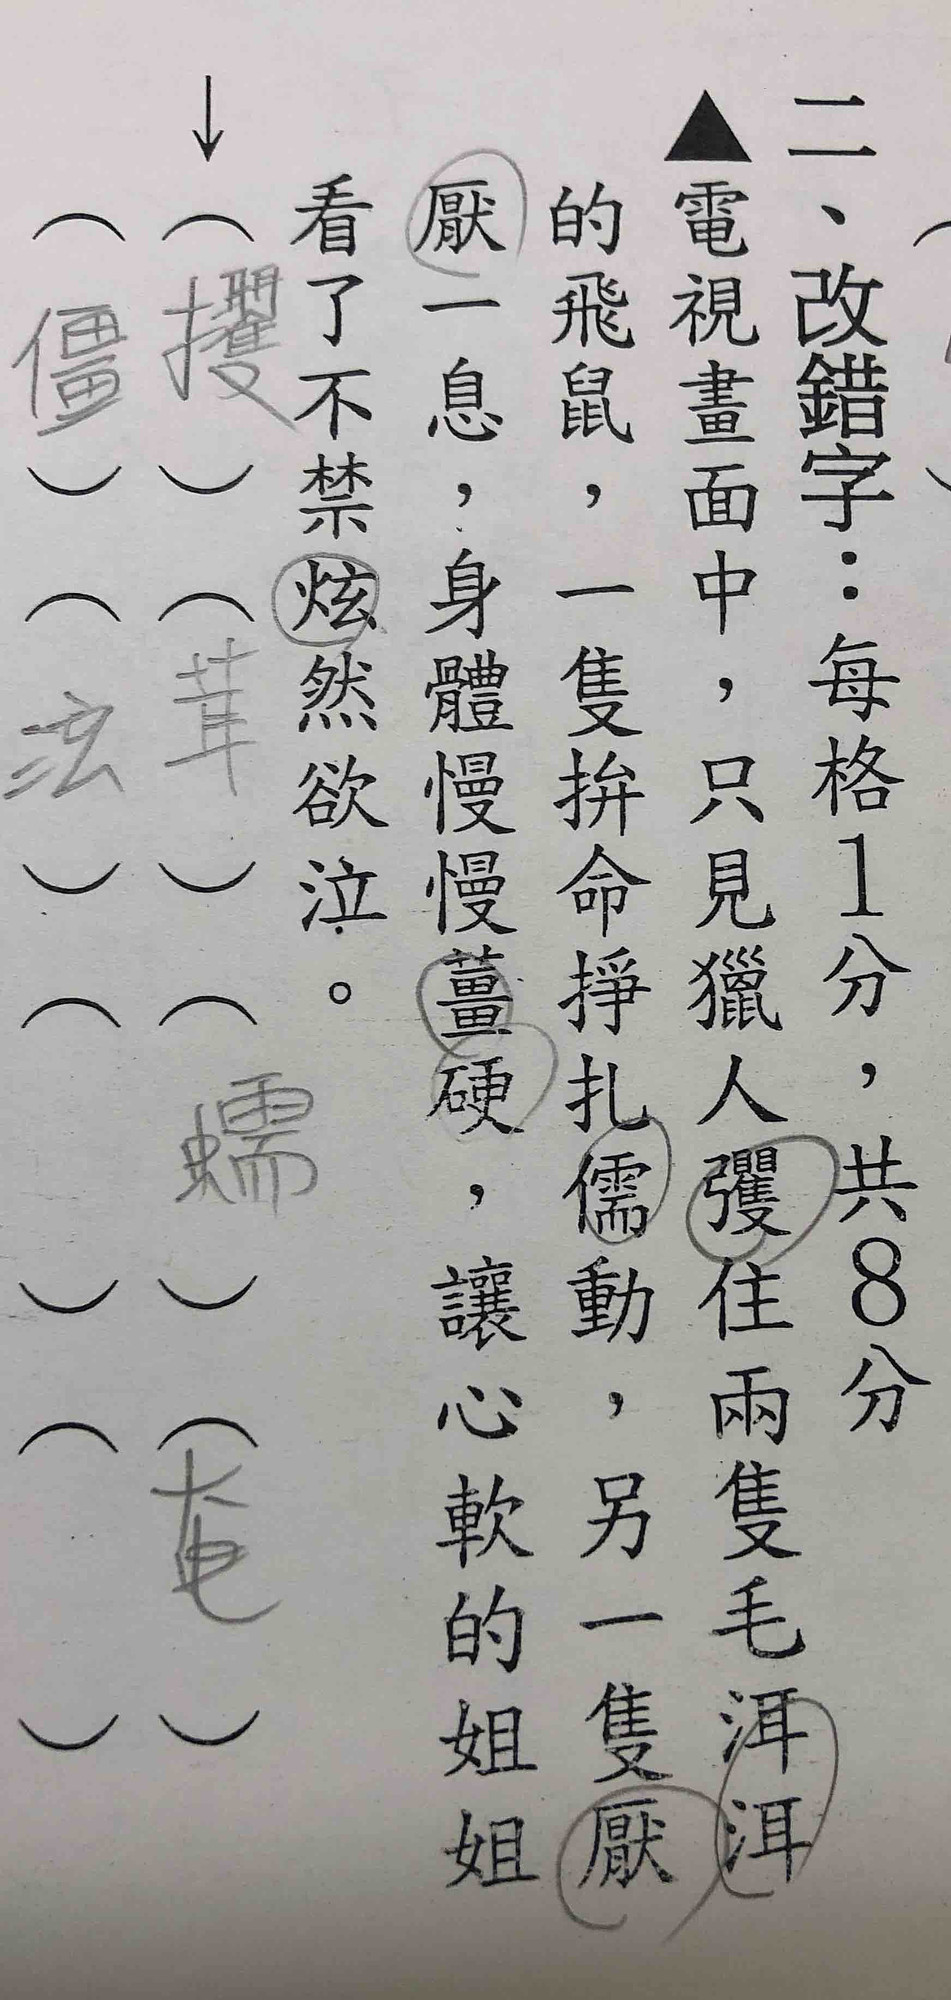 二、改錯字：每格1分，共8分
▲電視畫面中，只見獵人彏住兩隻毛洱洱
的飛鼠，一隻拚命掙扎儒動，另一隻厭
厭一息，身體慢慢薑硬，讓心軟的姐姐
看了不禁炫然欲泣。
↓（攫）（茸）（蠕）（奄）
（僵）（泫）（）（）